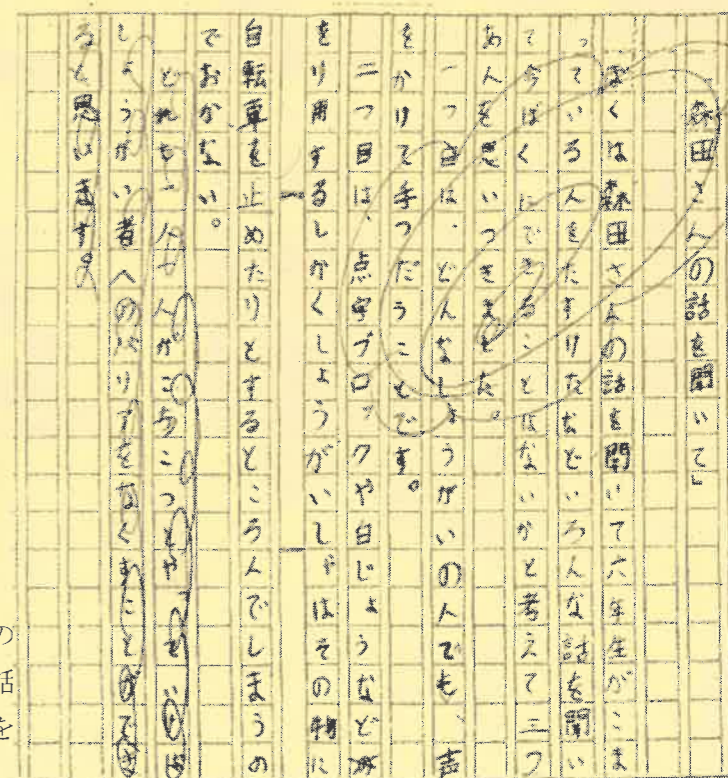 「森田さんの話を聞いて」
ぼくは森田さんの話を聞いて六年生がこま
っている人をたすけたなどいろんな話を聞い
て今ぼくにできることはないかと考えて三つ
あんを思いつきました。
一つ目は、どんなしょうがいの人でも、声
をかけて手つだうことです。
二つ目は、点字ブロックや白じょうなど
をり用するしかくしょうがいしゃはその物に
自転車を止めたりとするところんでしまうの
でおかない。
どれも一人一人がこころ
しょうがい者への
ると思います。
の
話
を